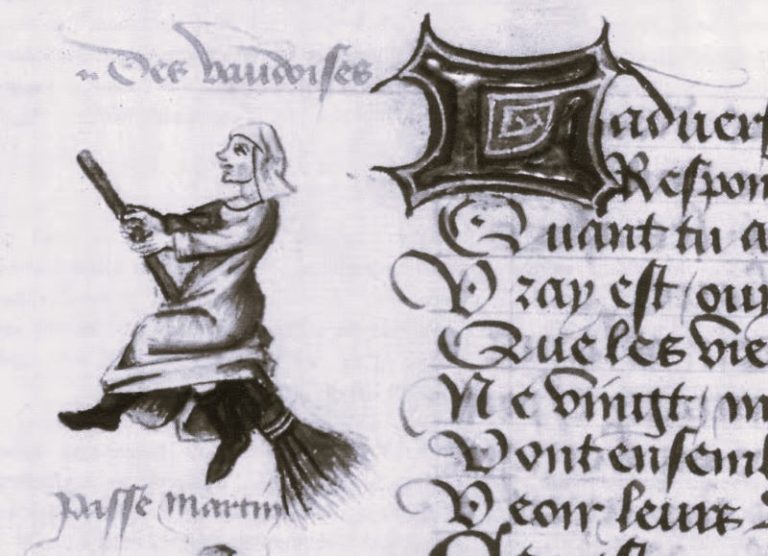 Des vaudoises
L'aduers
Respon
Quant tu a
Vray est / ouy
Que les vie
Ne vingt / n
Vont ensembl
Veoir leurs
passe martin